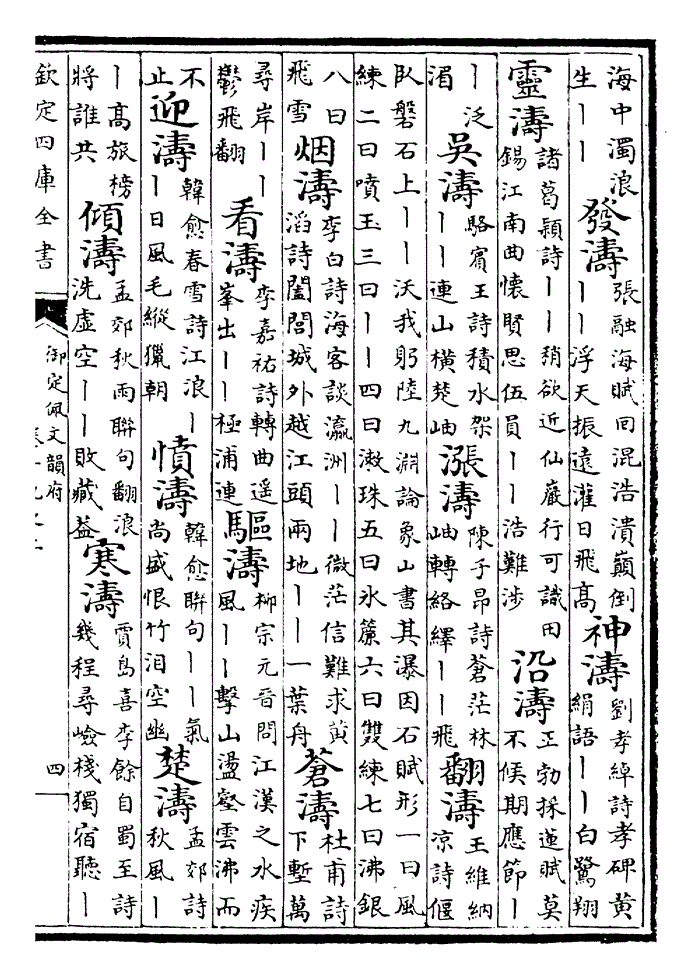 海中濁浪
生丨丨
發濤
張融海賦回混浩潰巔倒
丨丨浮天振遠灌日飛高
神濤
劉孝綽詩孝碑黃
絹語丨丨白鷺翔
靈濤
諸葛穎詩丨丨稍欲近仙巖行可識田
錫江南曲懷賢思伍員丨丨浩難涉
沿濤
王勃採蓮賦莫
不候期應節丨
丨泛
湄
吳濤
駱賓王詩積水架
丨丨連山橫楚岫
漲濤
陳子昂詩蒼茫林
岫轉絡繹丨丨飛
翻濤
王維納
涼詩偃
臥磐石上丨丨沃我躬陸九淵論象山書其瀑因石賦形一曰風
練二曰噴玉三曰丨丨四曰潄珠五曰水簾六曰雙練七曰沸銀
八曰
飛雪
烟濤
李白詩海客談瀛洲丨丨微茫信難求黄
滔詩闔閭城外越江頭兩地丨丨一葉舟
蒼濤
杜甫詩
下塹萬
尋岸丨丨
鬱飛翻
看濤
李嘉祐詩轉曲遥
峯出丨丨極浦連
驅濤
柳宗元晉問江漢之水疾
風丨丨擊山盪壑雲沸而
不
止
迎濤
韓愈春雪詩江浪丨
丨日風毛縱獵朝
憤濤
韓愈聯句丨丨氣
尚盛恨竹泪空幽
楚濤
孟郊詩
秋風丨
丨高旅榜
將誰共
傾濤
孟郊秋雨聯句翻浪
洗虛空丨丨敗藏葢
寒濤
賈島喜李餘自蜀至詩
幾程尋嶮棧獨宿聽丨
欽定四庫全書
御定佩文韻府
卷十九之二
四